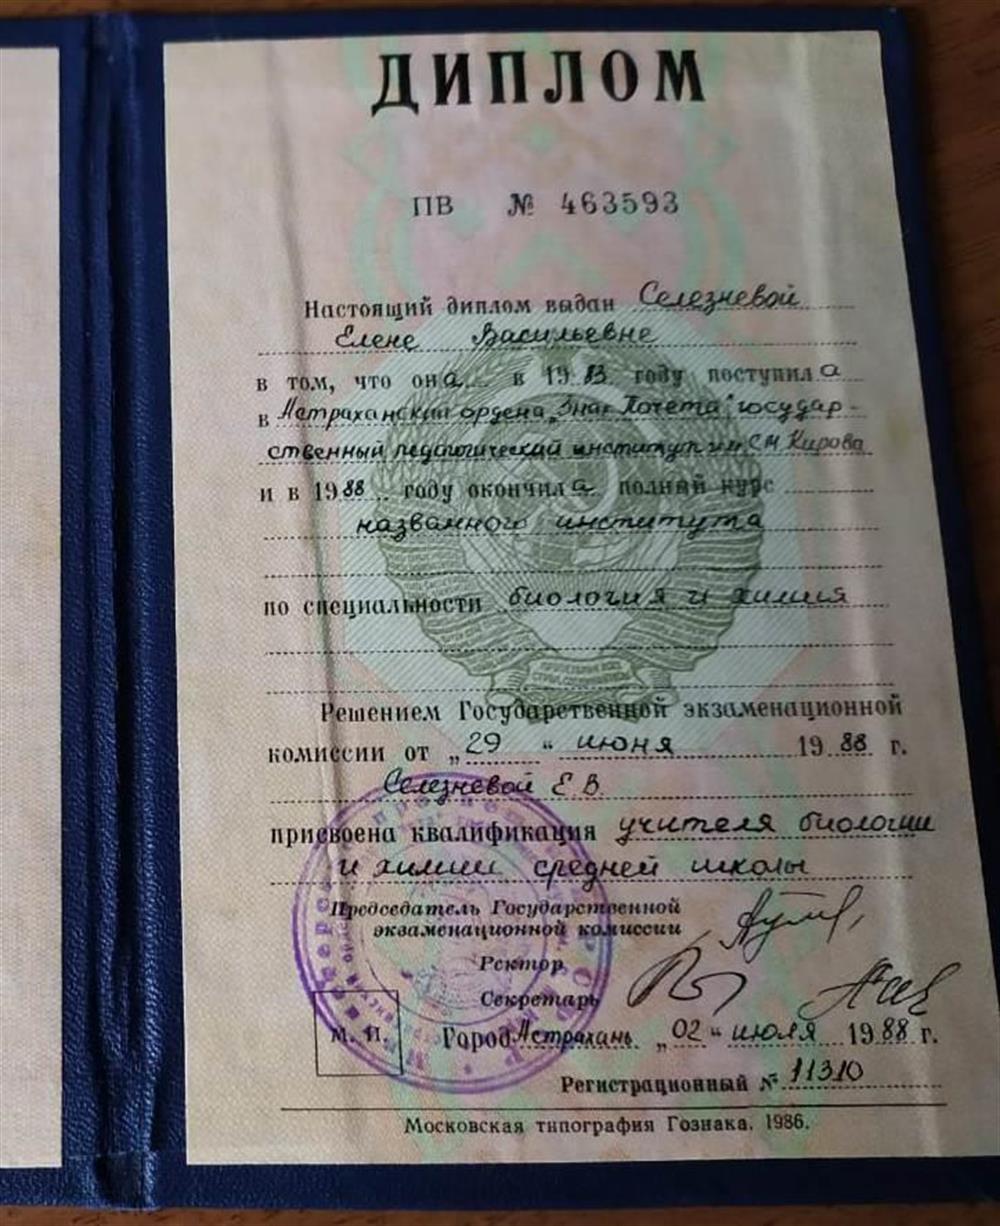 ДИПЛОМ
ПВ № 463593
Настоящий диплом выдан Селезневой
Елене Васильевне
в том, что она в 1983 году поступила
в Астраханский ордена „Знак Почета" государ-
ственный педагогический институт им С.М Кирова
и в 1988 году окончила полный курс
названного института
по специальности биология и химия
Решением Государственной экзаменационной
комиссии от „29 " июня 1988 г.
Селезневой Е.В.
присвоена квалификация учителя биологии
и химии средней школы
Председатель Государственной
экзаменационной комиссии
Ректор
Секретарь
М. П. Город Астрахань „02 " июля 1988 г.
Регистрационный № 11310
Московская типография Гознака. 1986.